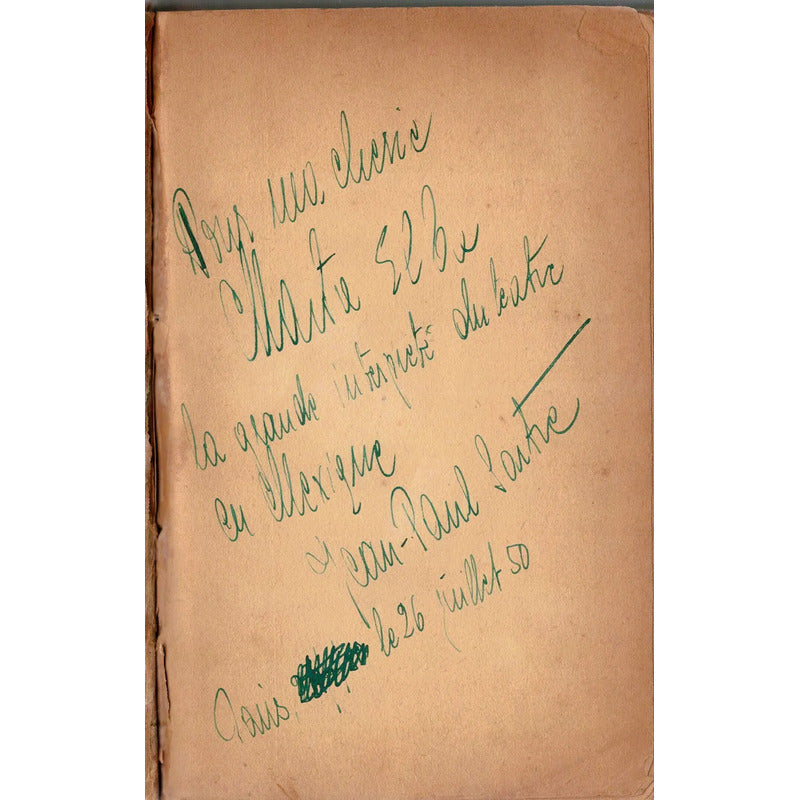 Pour ma cherie
Marta Elba
la grande interpreté du teatre
en Mexique
Jean-Paul Sartre
Paris, le 26 juillet 50